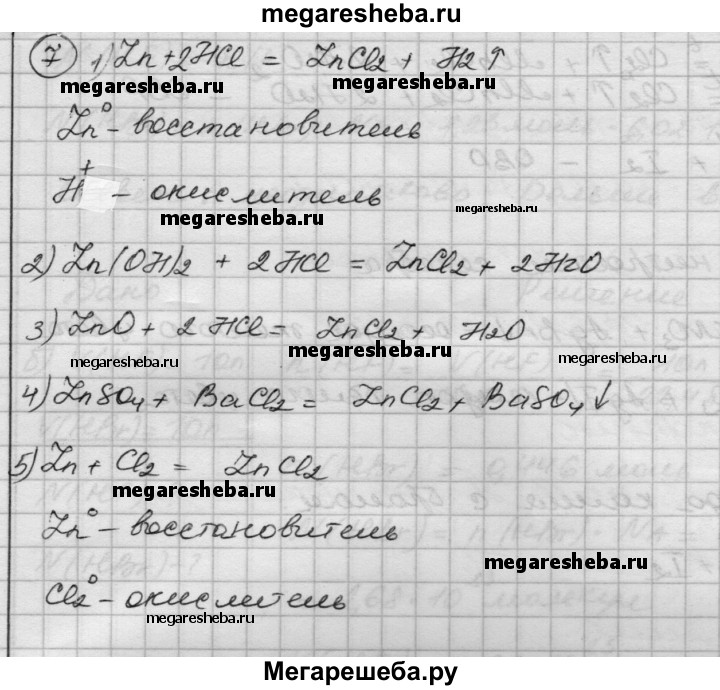 megaresheba.ru
7 1) Zn + 2HCl = ZnCl2 + H2↑
megaresheba.ru megaresheba.ru
Zn⁰ - восстановитель
H⁺ - окислитель
megaresheba.ru megaresheba.ru
2) Zn(OH)2 + 2HCl = ZnCl2 + 2H2O
3) ZnO + 2HCl = ZnCl2 + H2O
megaresheba.ru megaresheba.ru megaresheba.ru
4) ZnSO4 + BaCl2 = ZnCl2 + BaSO4↓
5) Zn + Cl2 = ZnCl2
megaresheba.ru
Zn⁰ - восстановитель
megaresheba.ru
Cl2⁰ - окислитель
megaresheba.ru
Мегарешеба.ру